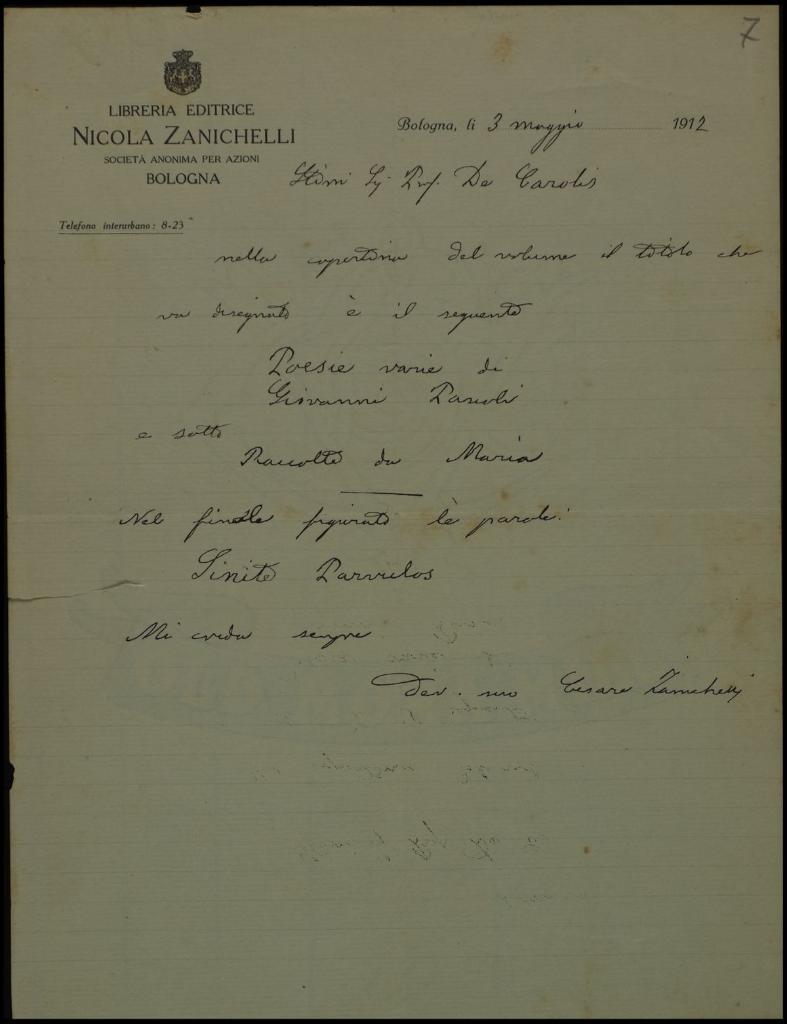 7
LIBRERIA EDITRICE
NICOLA ZANICHELLI
SOCIETÀ ANONIMA PER AZIONI
BOLOGNA
Telefono interurbano: 8-23
Bologna, li 3 maggio 1912
Sig. Prof. De Carolis
nella copertina del volume il titolo che
va disegnato è il seguente
Poesie varie di
Giovanni Pascoli
e sotto
Raccolte da Maria
Nel finale figurato le parole:
Sinite Parvulos
Mi creda sempre
Dev. suo Cesare Zanichelli